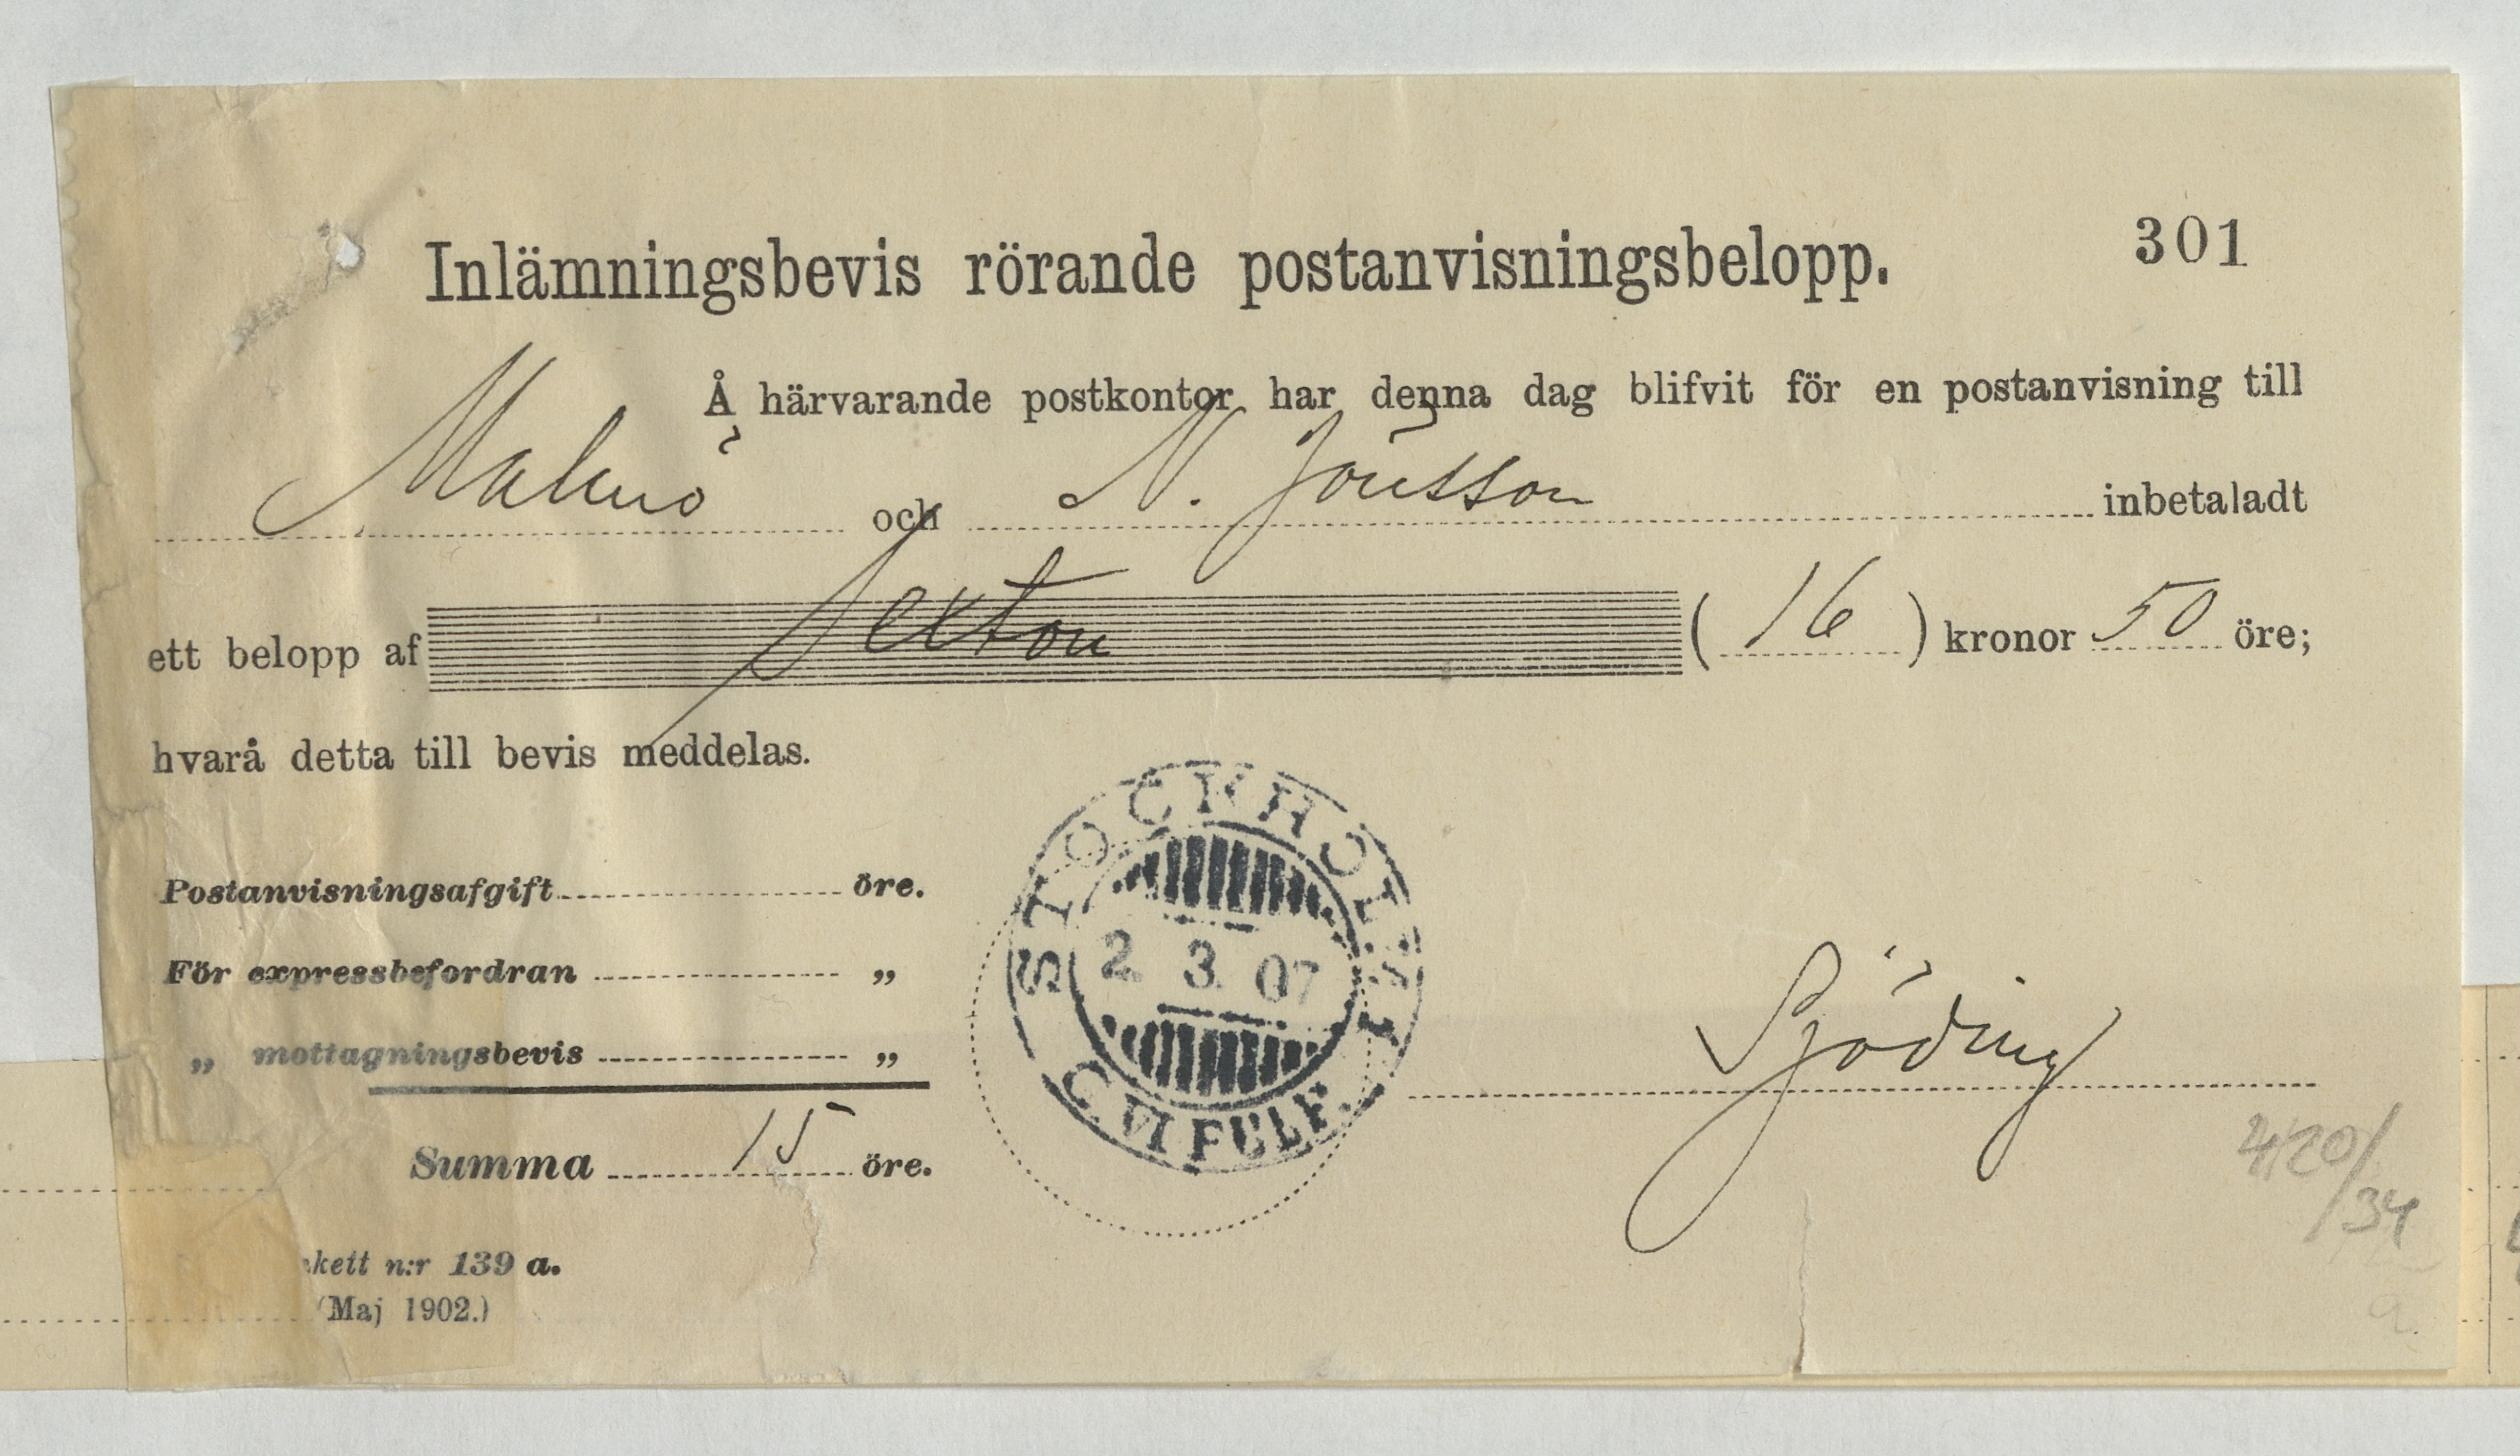 301
Inlämningsbevis rörande postanvisningsbelopp.
Å härvarande postkontor har denna dag blifvit för en postanvisning till
Malmö och N. Jönsson inbetaladt
ett belopp af Sexton (16) kronor 50 öre;
hvarå detta till bevis meddelas.
STOCKHOLM 1
2. 3. 07
C. VI FÜLF.
Postanvisningsafgift öre.
För expressbefordran „
„ mottagningsbevis „
Sjöding
Summa 15 öre.
34
kett n:r 139 a.
(Maj 1902.)